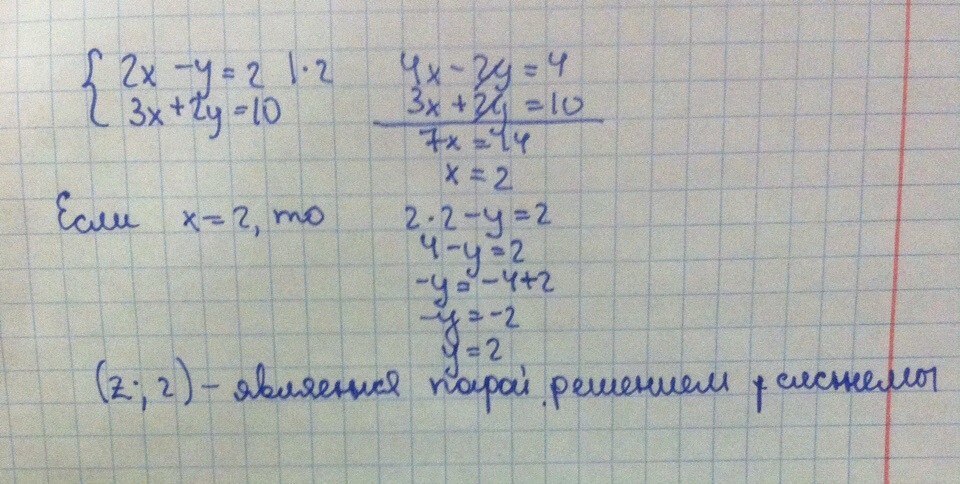 { 2x - y = 2 | · 2 4x - 2y = 4
3x + 2y = 10 3x + 2y = 10
7x = 14
x = 2
Если x = 2, то 2 · 2 - y = 2
4 - y = 2
-y = -4+2
-y = -2
y = 2
(2; 2) - является парой, решением системы